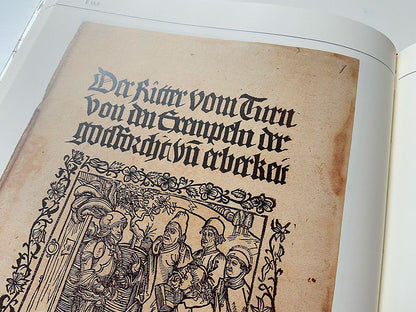 Der Ritter vom Turn
von den Exempeln der
gotsforcht vñ erberkeit